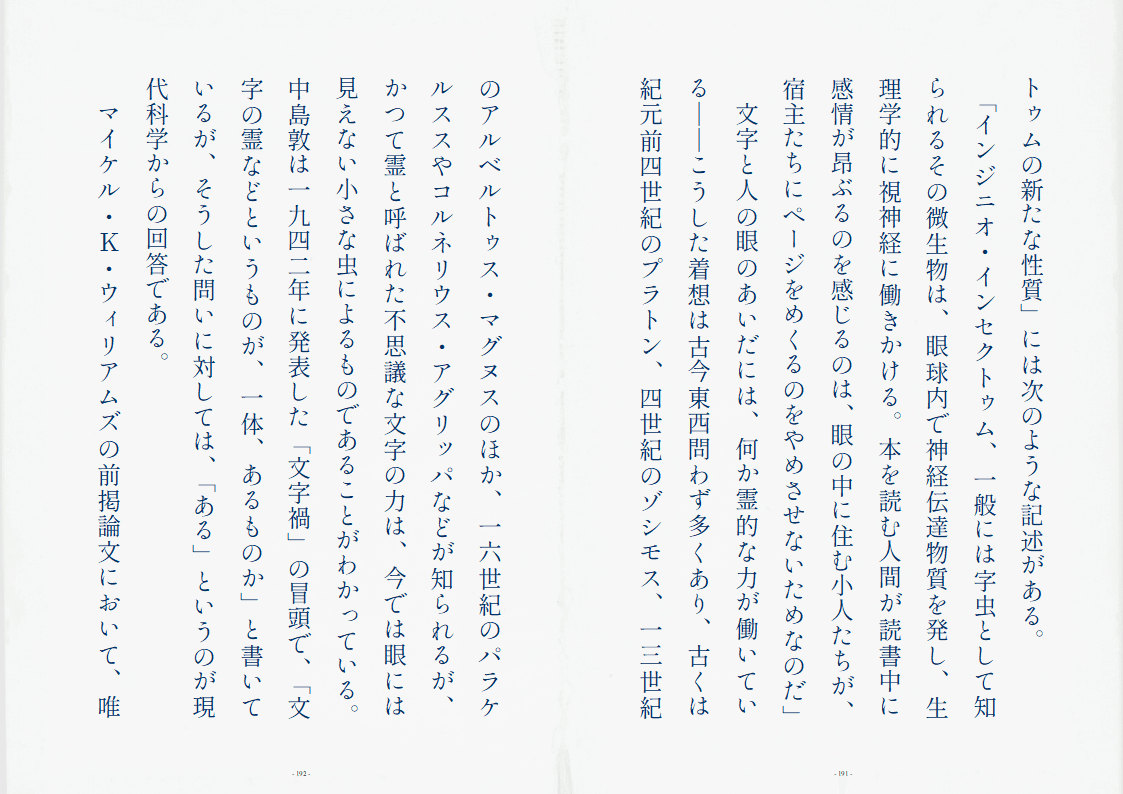 トゥムの新たな性質」には次のような記述がある。
「インジニオ・インセクトゥム、一般には字虫として知
られるその微生物は、眼球内で神経伝達物質を発し、生
理学的に視神経に働きかける。本を読む人間が読書中に
感情が昂ぶるのを感じるのは、眼の中に住む小人たちが、
宿主たちにページをめくるのをやめさせないためなのだ」
文字と人の眼のあいだには、何か霊的な力が働いてい
る――こうした着想は古今東西問わず多くあり、古くは
紀元前四世紀のプラトン、四世紀のゾシモス、一三世紀
- 191 -
のアルベルトゥス・マグヌスのほか、一六世紀のパラケ
ルススやコルネリウス・アグリッパなどが知られるが、
かつて霊と呼ばれた不思議な文字の力は、今では眼には
見えない小さな虫によるものであることがわかっている。
中島敦は一九四二年に発表した「文字禍」の冒頭で、「文
字の霊などというものが、一体、あるものか」と書いて
いるが、そうした問いに対しては、「ある」というのが現
代科学からの回答である。
マイケル・K・ウィリアムズの前掲論文において、唯
- 192 -